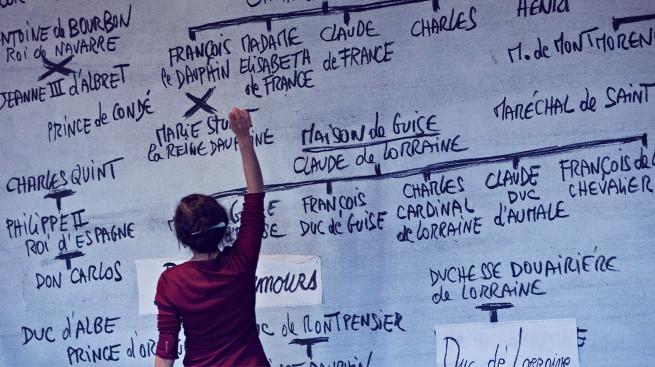 ANTOINE de BOURBON
Roi de NAVARRE
JEANNE III d'ALBRET
PRINCE de CONDÉ
FRANÇOIS
le DAUPHIN
MADAME
ELISABETH
de FRANCE
CLAUDE
de FRANCE
CHARLES
HENRI
M. de MONTMOREN
MARÉCHAL de SAINT
MARIE STU
la REINE DAUPHINE
MAISON de GUISE
CLAUDE de LORRAINE
CHARLES QUINT
PHILIPPE II
ROI d'ESPAGNE
DON CARLOS
FRANÇOIS
DUC de GUISE
CHARLES
CARDINAL
de LORRAINE
CLAUDE
DUC
d'AUMALE
FRANÇOIS de
CHEVALIER
DUC d'ALBE
PRINCE d'OR
MOURS
DUC de MONTPENSIER
DUCHESSE DOUAIRIÈRE
de LORRAINE
Duc de Lorraine